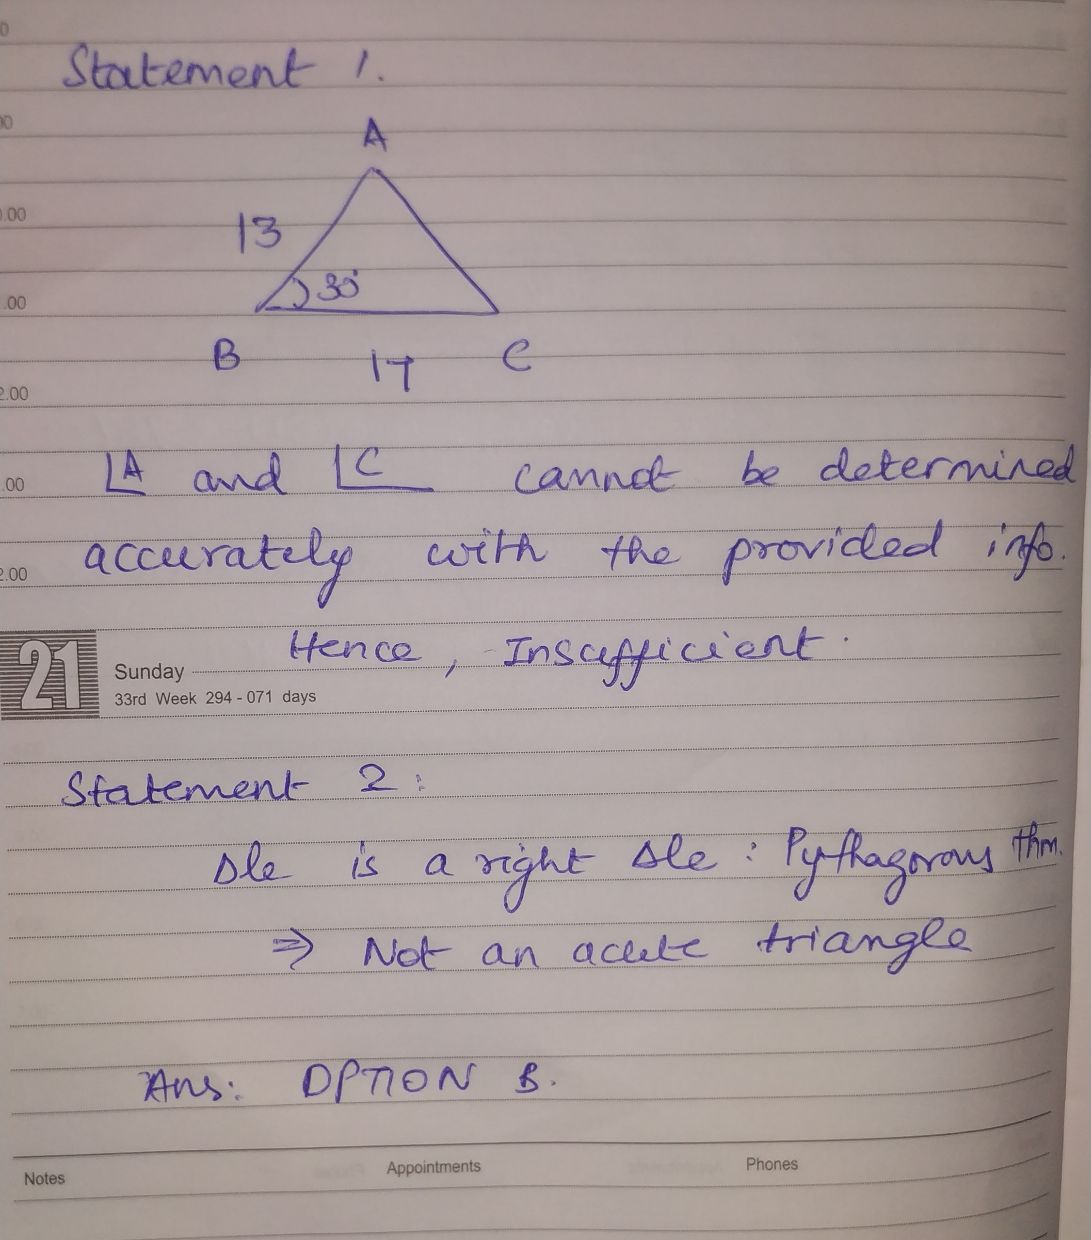 Statement 1.
A
13
30°
B
17
C
∠A and ∠C cannot be determined
accurately with the provided info.
Hence, Insufficient.
21
Sunday
33rd Week 294 - 071 days
Statement 2:
Δle is a right Δle : Pythagorous thm.
⇒ Not an acute triangle
Ans: OPTION B.
Notes
Appointments
Phones